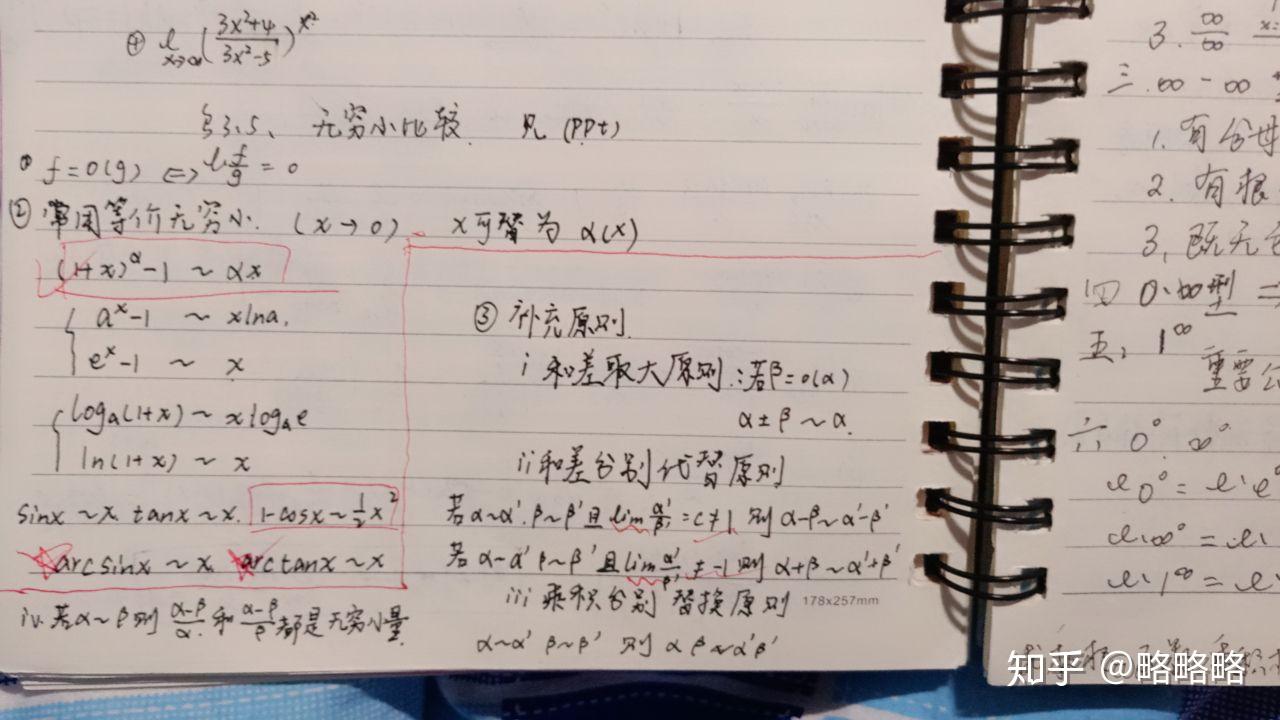 ④ l (3x²+4 / 3x²-5)^x²
x→∞
§3.5、无穷小比较. 见(PPt)
① f=o(g) <=> l· f/g = 0
② 常用等价无穷小. (x→0). x可替为 α(x)
(1+x)^α-1 ~ αx
a^x-1 ~ xlna.
e^x-1 ~ x
log_a(1+x) ~ xlog_a e
ln(1+x) ~ x
sinx~x. tanx~x. 1-cosx~½x²
arcsinx~x. arctanx~x
iv. 若α~β则 (α-β)/α 和 (α-β)/β 都是无穷小量.
③ 补充原则.
i 和差取大原则.:若β=o(α)
α±β~α.
ii 和差分别代替原则
若α~α'.β~β'且lim α'/β'=c≠1 则 α-β~α'-β'
若 α~α' β~β'且lim α'/β' ≠-1则 α+β~α'+β'
iii 乘积分别替换原则
α~α' β~β' 则 αβ~α'β'
178x257mm
3. ∞/∞
三.∞-∞
1. 有分母
2. 有根
3, 既无
四 0·∞型 =
五, 1^∞
重要公
六 0⁰ ∞⁰
l·0⁰ = l·e
l·∞⁰ = l·
l·1^∞ = l·
知乎 @略略略